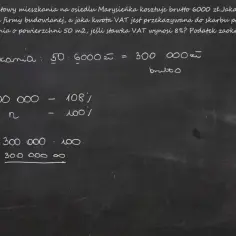 towy mieszkania na osiedlu Marysieńka kosztuje brutto 6000 zł. Jaka
firmy budowlanej, a jaka kwota VAT jest przekazywana do skarbu p
nia o powierzchni 50 m2, jeśli stawka VAT wynosi 8%? Podatek zaok
kania: 50 · 6000 zł = 300 000 zł
brutto
00 000 – 108%
n – 100%
300 000 · 100
300 000 00